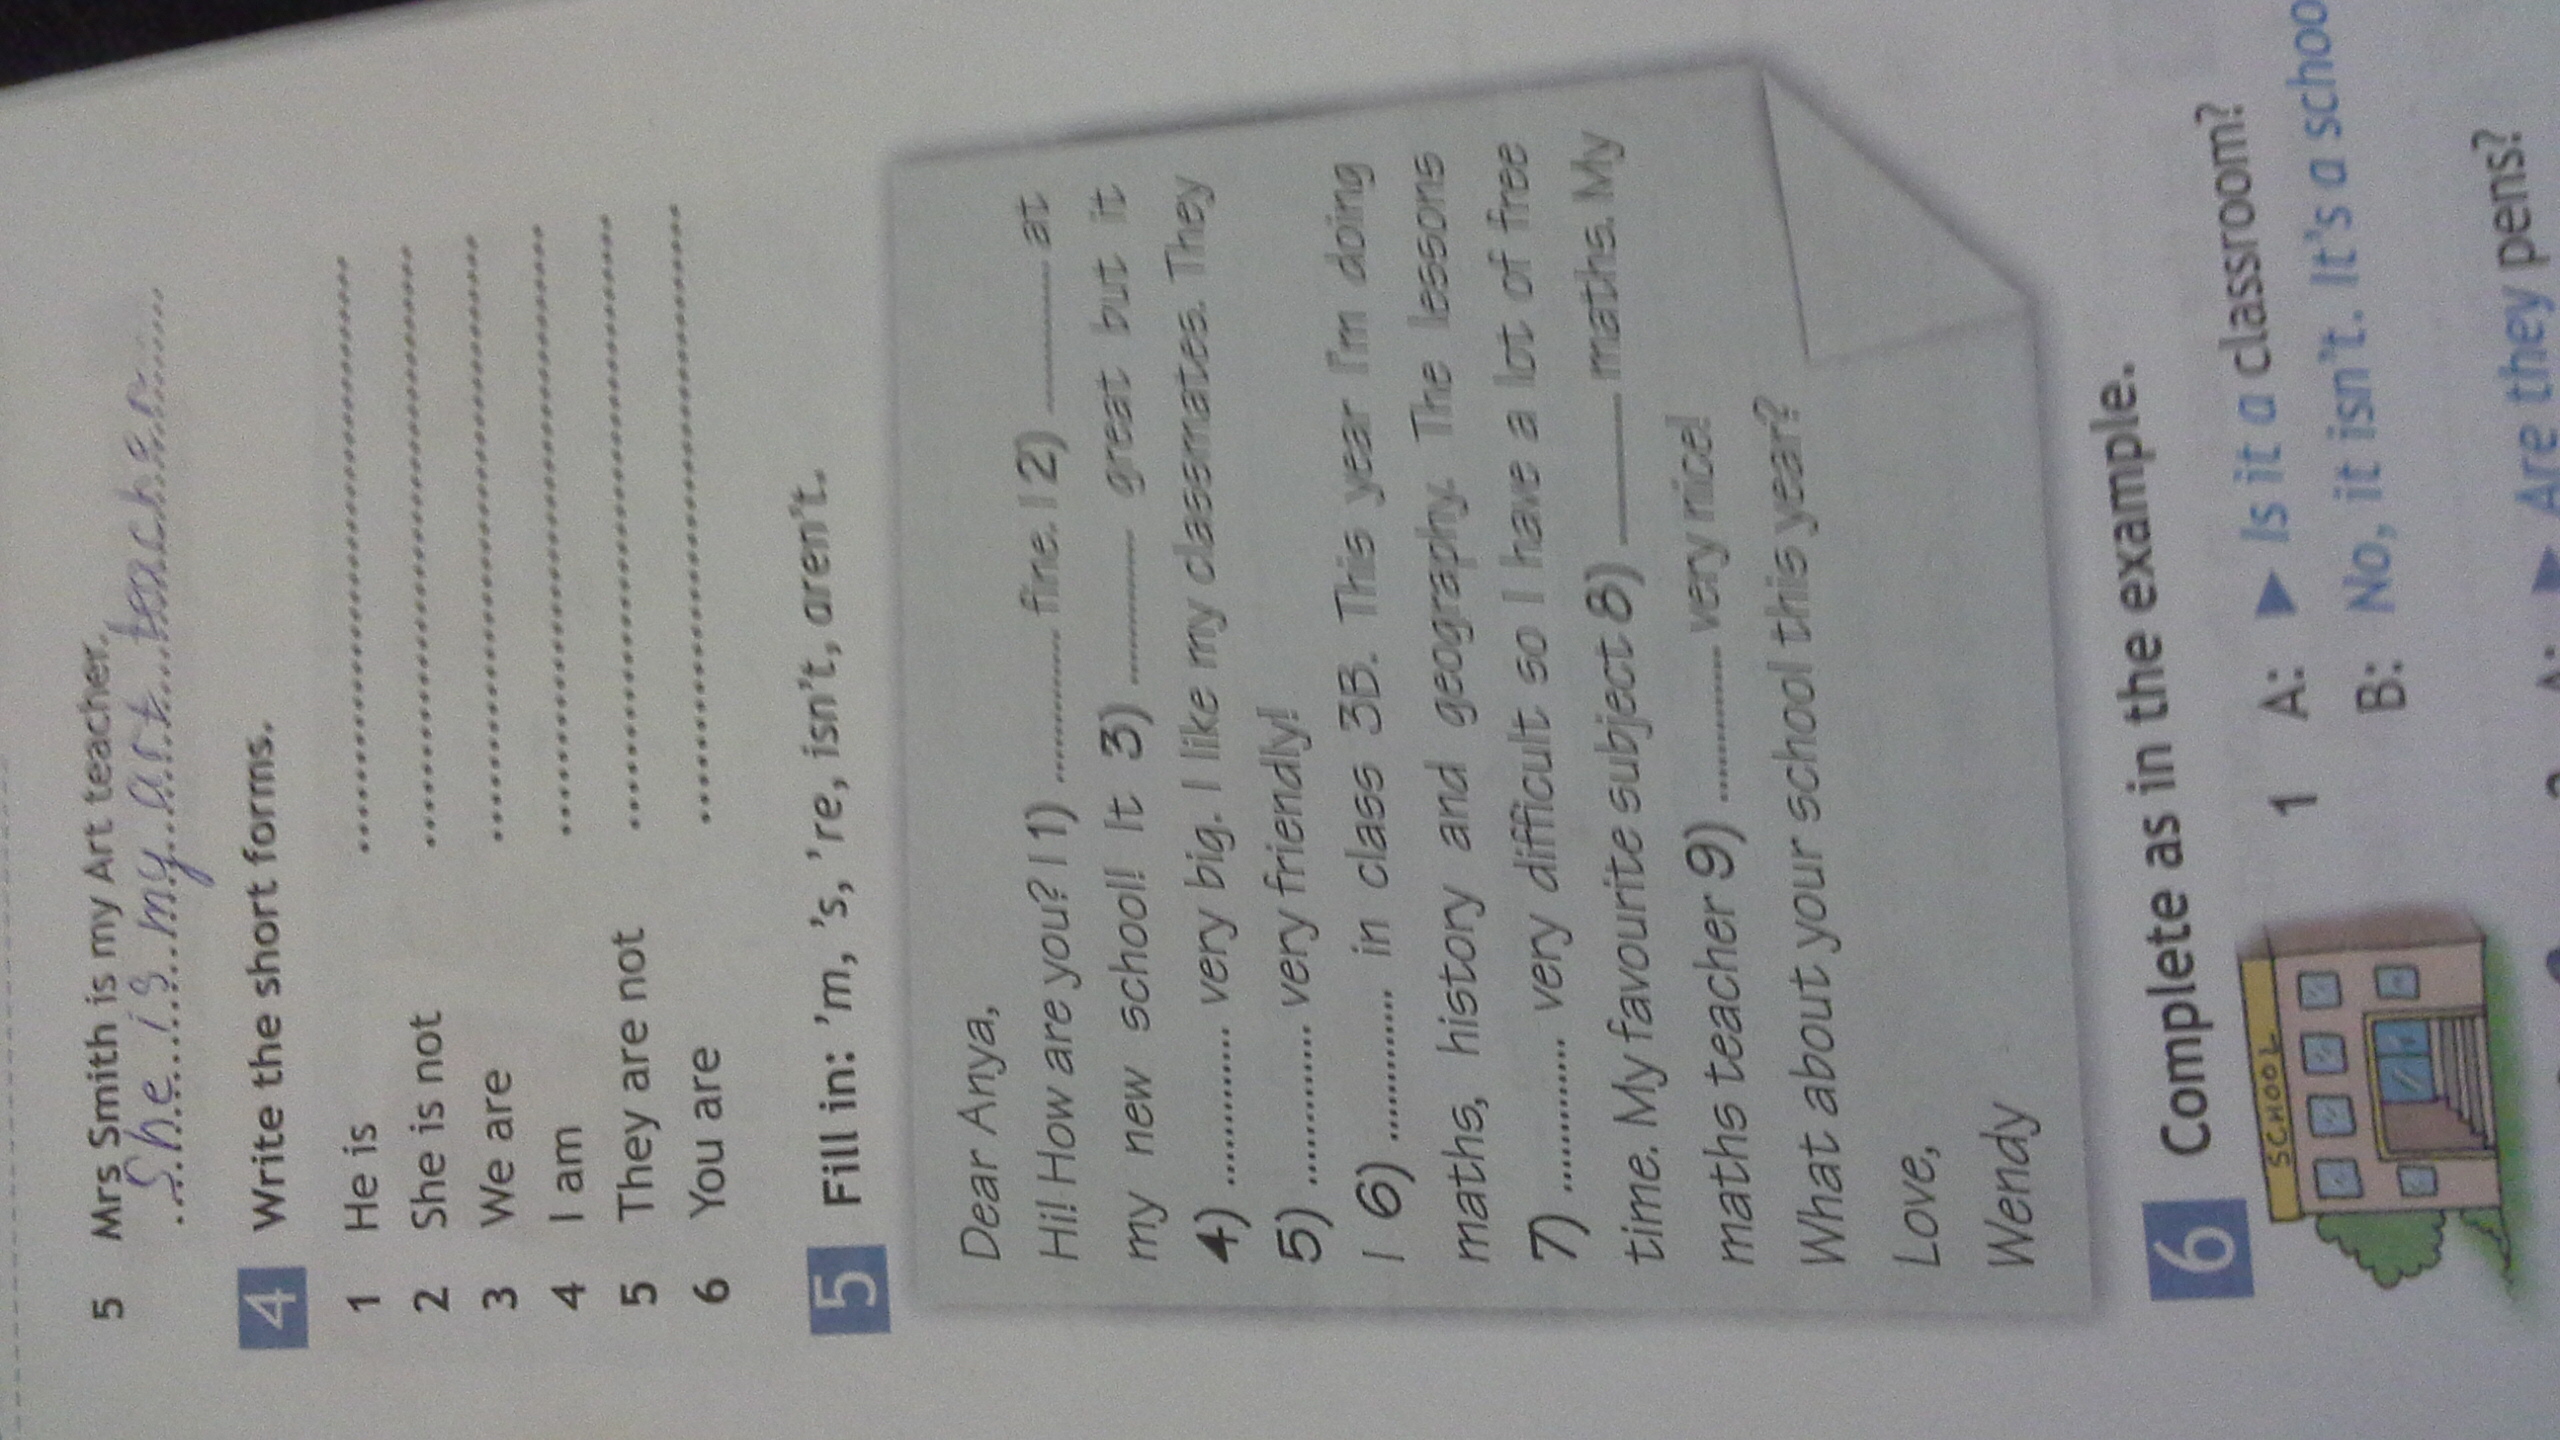 5 Mrs Smith is my Art teacher.
She is my art teacher
4 Write the short forms.
1 He is ........................
2 She is not ........................
3 We are ........................
4 I am ........................
5 They are not ........................
6 You are ........................
5 Fill in: 'm, 's, 're, isn't, aren't.
Dear Anya,
Hi! How are you? I 1) ............ fine. I 2) ............ at
my new school! It 3) ............ great but it
4) ............ very big. I like my classmates. They
5) ............ very friendly!
I 6) ............ in class 3B. This year I'm doing
maths, history and geography. The lessons
7) ............ very difficult so I have a lot of free
time. My favourite subject 8) ............ maths. My
maths teacher 9) ............ very nice!
What about your school this year?
Love,
Wendy
6 Complete as in the example.
SCHOOL
1 A: ▶ Is it a classroom?
B: No, it isn't. It's a schoo
A: ▶ Are they pens?